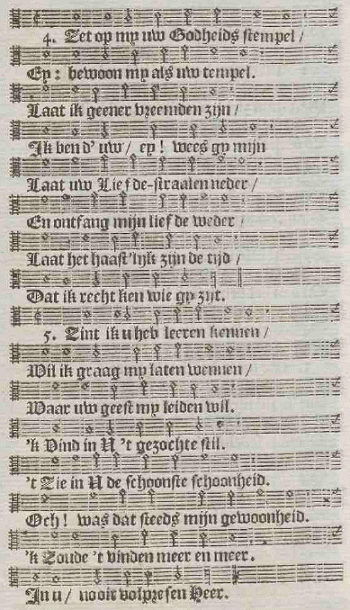 4. Zet op my uw Godheids stempel /
Ey: bewoon my als uw tempel.
Laat ik geener vreemden zijn /
Ik ben d' uw / ey! wees gy mijn
Laat uw Liefde-straalen neder /
En ontfang mijn liefde weder /
Laat het haast'lyk zijn de tijd /
Dat ik recht ken wie gy zyt.
5. Zint ik u heb leeren kennen /
Wil ik graag my laten wennen /
Waar uw geest my leiden wil.
'k Vind in U 't gezochte stil.
't Zie in U de schoonste schoonheid.
Och! was dat steeds mijn gewoonheid.
'k Zoude 't vinden meer en meer.
In u / nooit volpresen Heer.